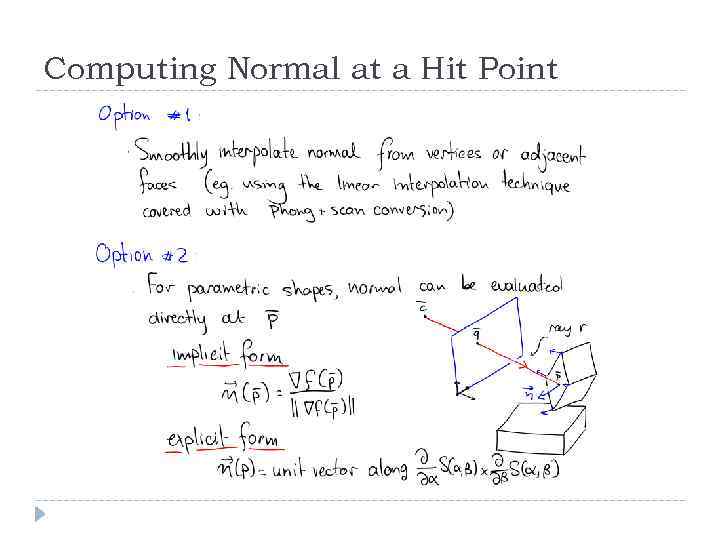 Computing Normal at a Hit Point
Option #1
Smoothly interpolate normal from vertices or adjacent
faces (eg. using the linear interpolation technique
covered with Phong + scan conversion)
Option #2
For parametric shapes, normal can be evaluated
directly at p̄
c̄
q̄
ray r
p̄
n⃗
implicit form
n⃗(p̄) = ∇f(p̄) / ||∇f(p̄)||
explicit form
n⃗(p) = unit vector along ∂/∂α S(α,β) × ∂/∂β S(α,β)